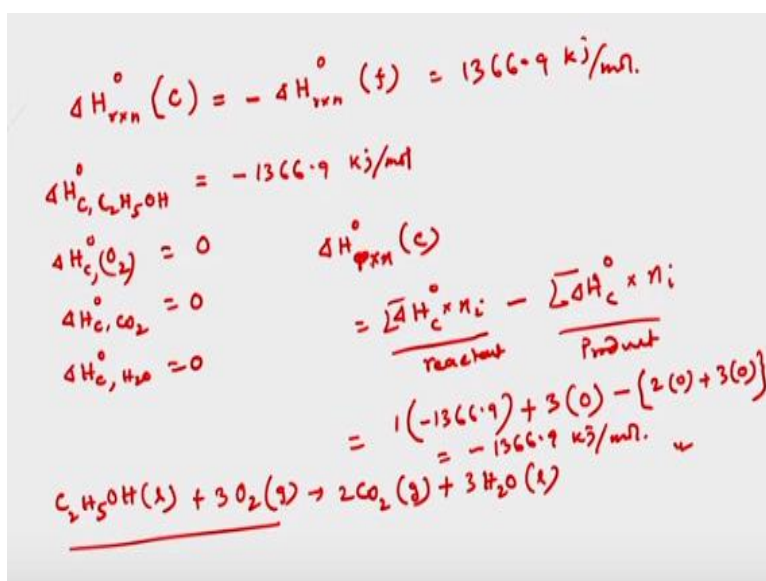 ΔH°rxn (c) = - ΔH°rxn (f) = 1366.9 kj/mol.
ΔH°c, C2H5OH = - 1366.9 kj/mol
ΔH°c, (O2) = 0
ΔH°rxn (c)
ΔH°c, CO2 = 0
= ΣΔH°c × ni - ΣΔH°c × ni
reactant Product
ΔH°c, H2O = 0
= 1(-1366.9) + 3(0) - {2(0) + 3(0)}
= - 1366.9 kj/mol.
C2H5OH(l) + 3O2(g) → 2CO2(g) + 3H2O(l)